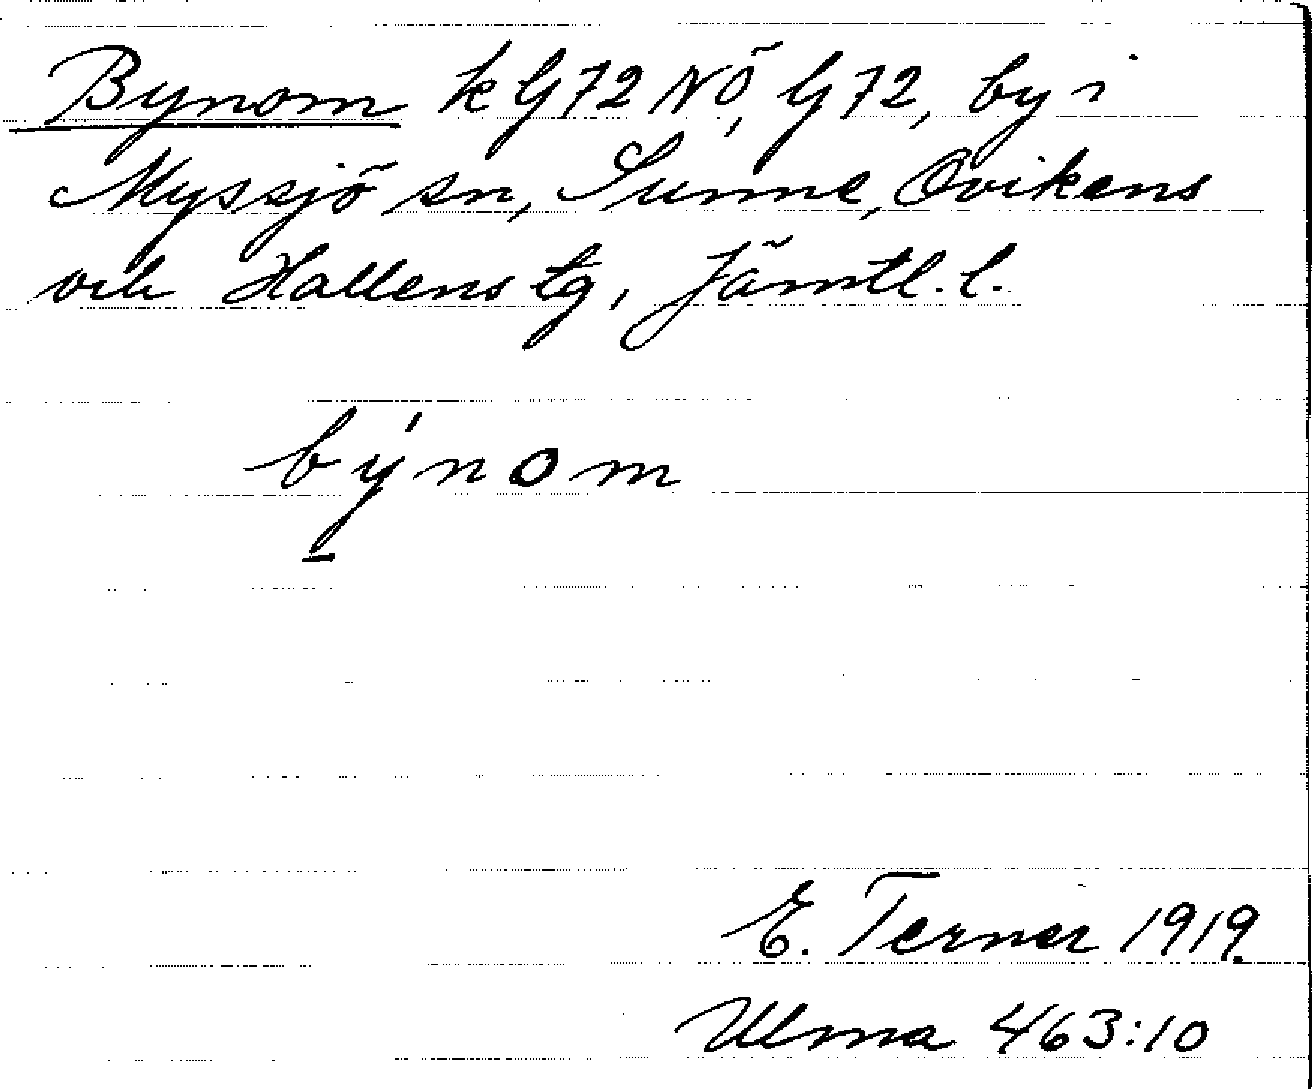 Bynom k G72 NÖ, G 72, by i
Myssjö sn, Sunne, Ovikens
och Hallens tg, Jämtl. l.
býnom
E. Terner 1919.
Ulma 463:10